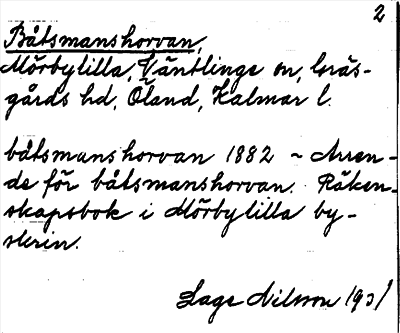 2
Båtsmanshorvan,
Mörbylilla, Ventlinge sn, Gräs-
gårds hd, Öland, Kalmar l.
båtsmanshorvan 1882 ~ Arren-
de för båtsmanshorvan. Räken-
skapsbok i Mörbylilla by-
skrin.
Lage Nilsson 1931